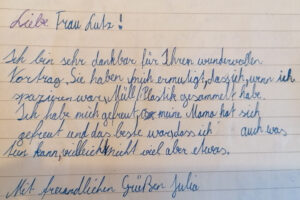 Liebe Frau Lutz!
Ich bin sehr dankbar für Ihren wundervollen
Vortrag. Sie haben mich ermutigt, dass ich, wenn ich
spazieren war, Müll/Plastik gesammelt habe.
Ich habe mich gefreut, meine Mama hat sich
gefreut und das beste war, dass ich auch was
tun kann, vielleicht nicht viel aber etwas.
Mit freundlichen Grüßen Julia